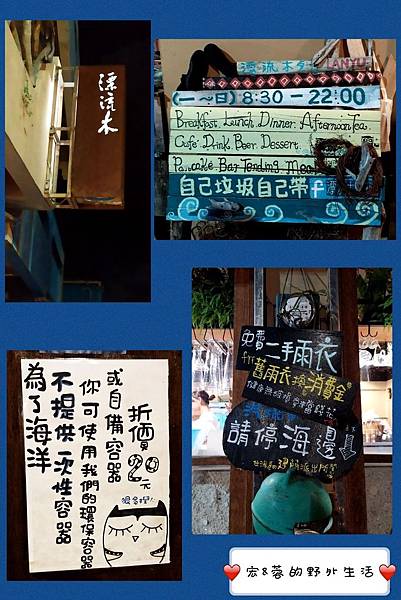 漂流木
漂流木
LANYU
(一～日) 8:30 - 22:00
Breakfast. Lunch. Dinner. Afternoon Tea.
Cafe. Drink. Beer. Dessert.
Pancake. Bar Tending.
自己垃圾自己帶
為了海洋
不提供一次性容器
你可使用我們的環保容器
或自備容器
折價20元
免費二手雨衣
for舊雨衣換消費金
請停海邊
宏&蓉的野外生活